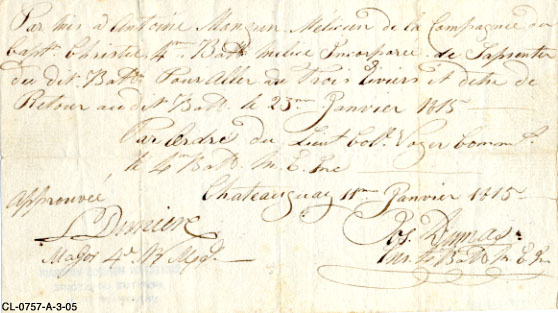 Par mis a Antoine Mangun Melicien de la Compagnie du
Capt. Christie 4me Batt. milice Incorporee de Sapsenter
du dit Battn Pour Aller au Trois Riviers et detre de
Retour au dit Batt. le 23me Janvier 1815
Par Ordre du Lieut Col. Voyer Commt.
le 4m Batt. M. E. Inc
Chateauguay 11me Janvier 1815
Approuvée
L Derriere
Jos. Dumas
Major 4e
4 Batt M. E. I
CL-0757-A-3-05